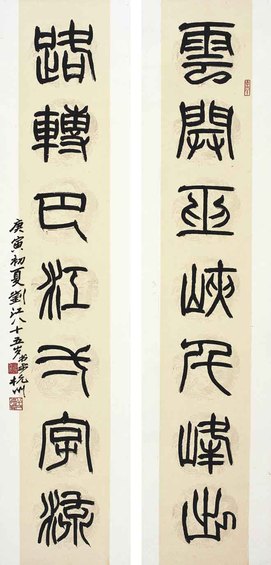 雲開巫峽千峰出
路轉巴江弌字流
庚寅初夏劉江八十五岁書于杭州